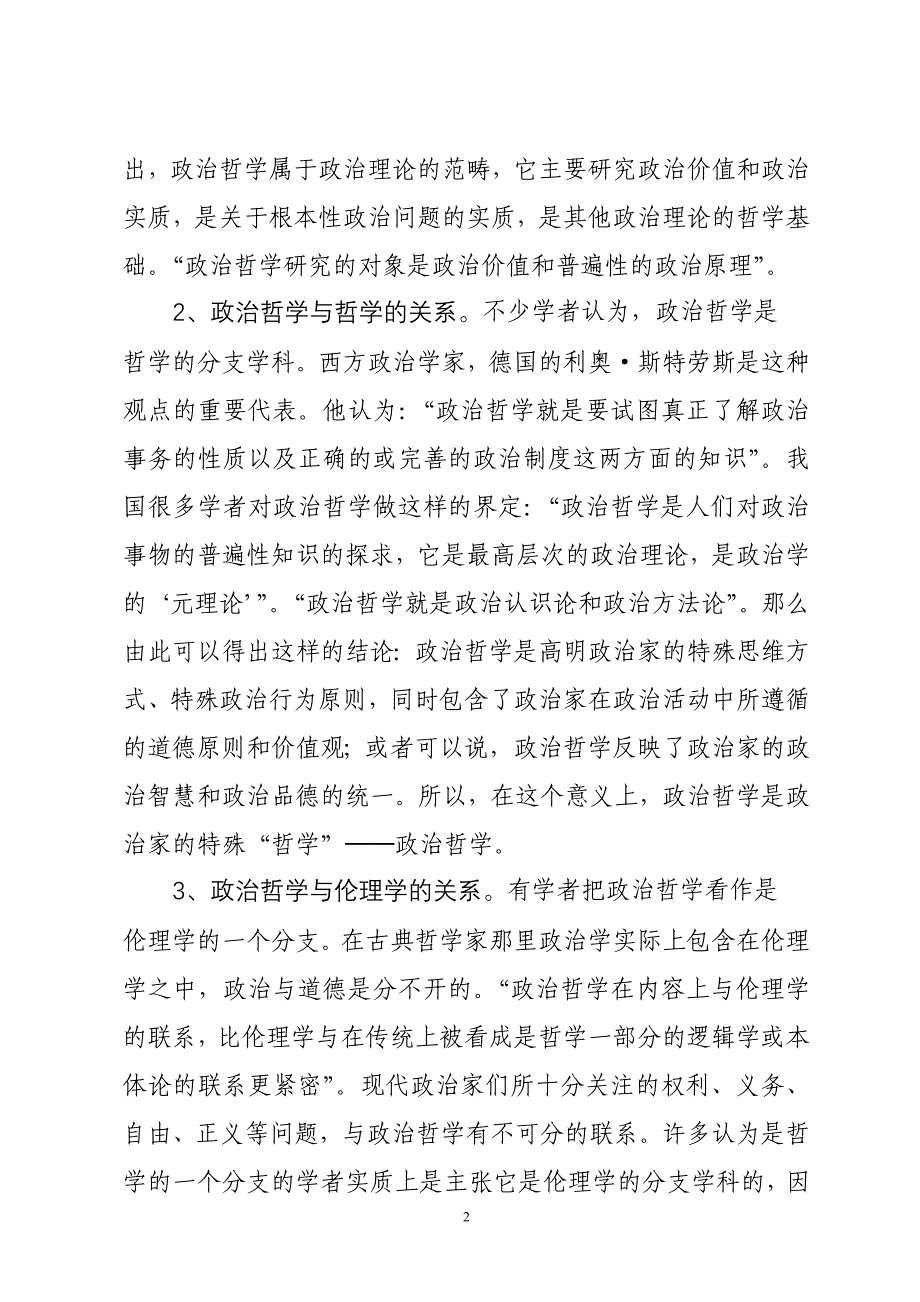 出，政治哲学属于政治理论的范畴，它主要研究政治价值和政治
实质，是关于根本性政治问题的实质，是其他政治理论的哲学基
础。“政治哲学研究的对象是政治价值和普遍性的政治原理”。
2、政治哲学与哲学的关系。不少学者认为，政治哲学是
哲学的分支学科。西方政治学家，德国的利奥•斯特劳斯是这种
观点的重要代表。他认为：“政治哲学就是要试图真正了解政治
事务的性质以及正确的或完善的政治制度这两方面的知识”。我
国很多学者对政治哲学做这样的界定：“政治哲学是人们对政治
事物的普遍性知识的探求，它是最高层次的政治理论，是政治学
的‘元理论’”。“政治哲学就是政治认识论和政治方法论”。那么
由此可以得出这样的结论：政治哲学是高明政治家的特殊思维方
式、特殊政治行为原则，同时包含了政治家在政治活动中所遵循
的道德原则和价值观；或者可以说，政治哲学反映了政治家的政
治智慧和政治品德的统一。所以，在这个意义上，政治哲学是政
治家的特殊“哲学”——政治哲学。
3、政治哲学与伦理学的关系。有学者把政治哲学看作是
伦理学的一个分支。在古典哲学家那里政治学实际上包含在伦理
学之中，政治与道德是分不开的。“政治哲学在内容上与伦理学
的联系，比伦理学与在传统上被看成是哲学一部分的逻辑学或本
体论的联系更紧密”。现代政治家们所十分关注的权利、义务、
自由、正义等问题，与政治哲学有不可分的联系。许多认为是哲
学的一个分支的学者实质上是主张它是伦理学的分支学科的，因
2